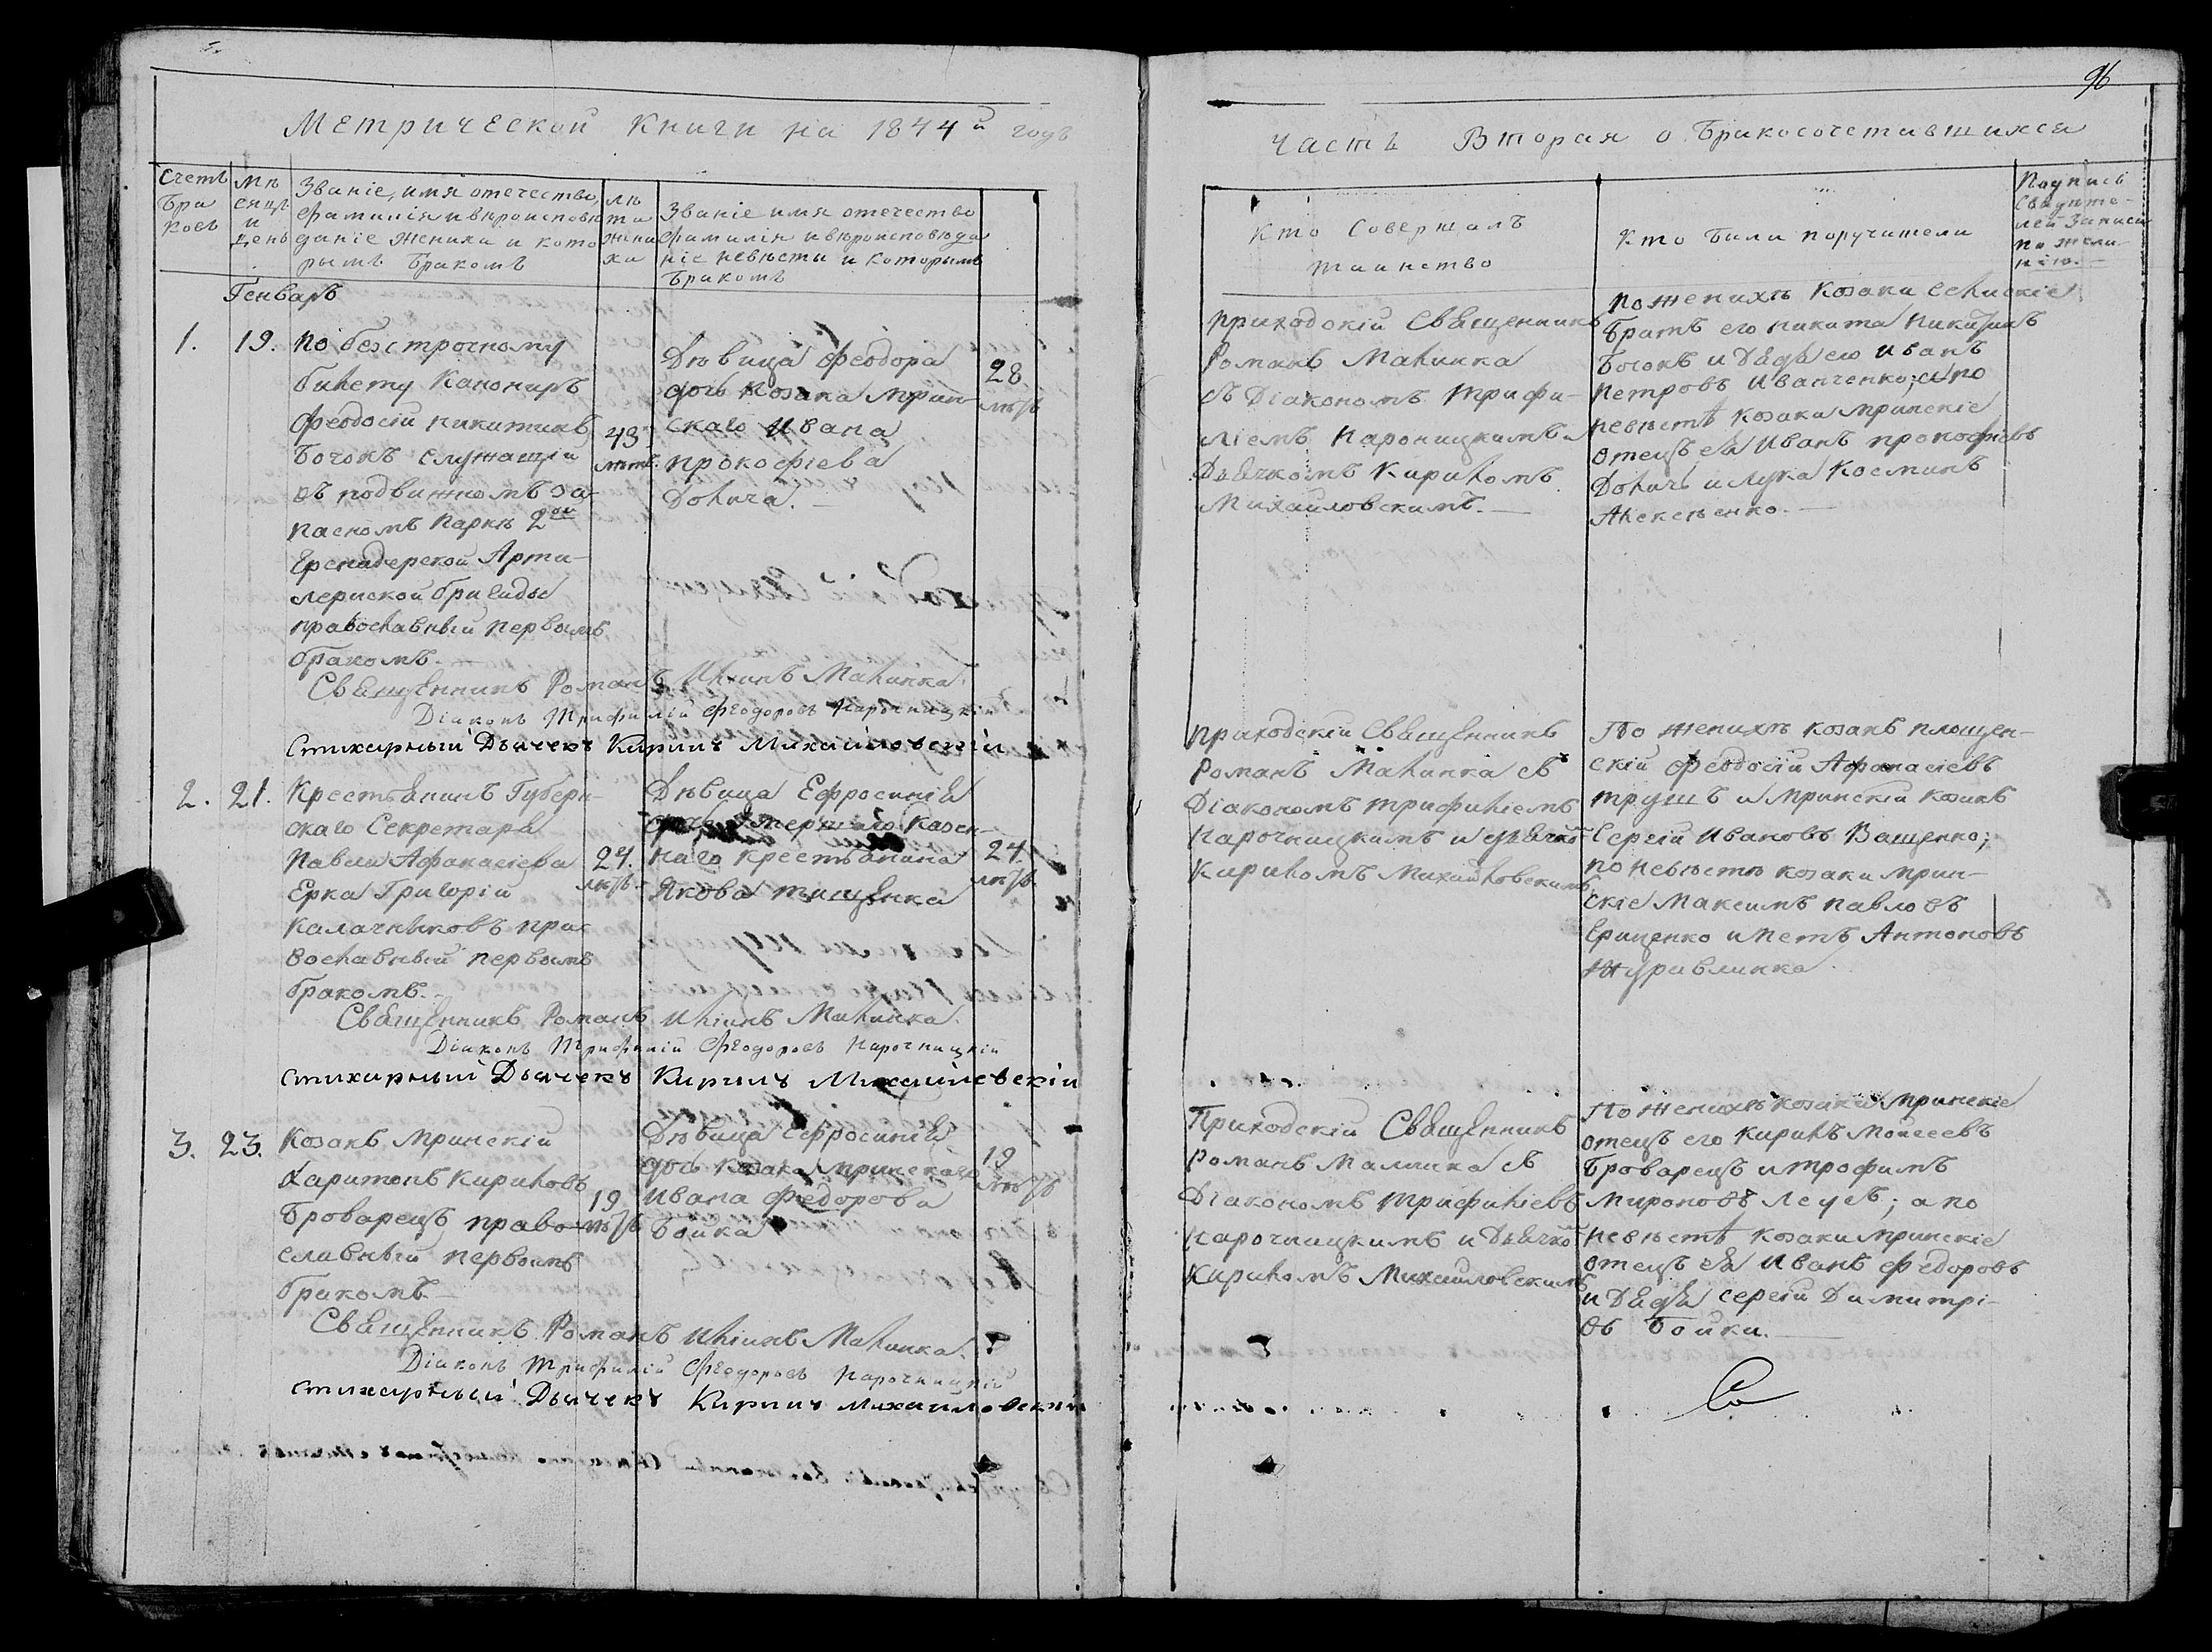 96
Метрической Книги на 1844й годъ
Часть Вторая о Бракосочетавшихся
Счетъ Бра ковъ
Мѣ сяцъ и день
Званіе, имя отечество,
фамилія и вѣроисповѣ
даніе жениха и кото
рымъ Бракомъ
лѣ та жени ха
Званіе имя отечество
фамилія и вѣроисповѣда
ніе невѣсты и которымъ
Бракомъ
Кто Совершалъ
таинство
Кто были поручители
Подпись
Свидѣте-
лей записи
по жела-
нію.
Генварь
1. 19.
По безсрочному
билету Канониръ
Феодосій Никитинъ
Бочокъ служащій
въ подвижномъ за-
пасномъ Паркѣ 2ой
Гренадерской Арти-
лерійской бригады
православный первымъ
бракомъ.
43 лѣтъ.
Дѣвица Феодора
дочь козака Мрин-
скаго Ивана
Прокофіева
Долича.
28 лѣтъ
Приходскій Священникъ
Романъ Малинка
съ Діакономъ Трифи-
ліемъ Нарочицкимъ и
Дьячкомъ Кириломъ
Михайловскимъ.
По женихѣ Козаки
Братъ его Никита Никитинъ
Бочокъ и дядя его Иванъ
Петровъ Иванченко; а по
невѣстѣ козаки Мринскіе
отецъ ея Иванъ Прокофіевъ
Доличъ и Лука Косминъ
Алексѣенко.
Священникъ Романъ Иліинъ Малинка.
Діаконъ Трифилій Феодоровъ Нарочницкій
Стихарный Дьячекъ Кирилъ Михайловскій
2. 21.
Крестьянинъ Губерн-
скаго Секретаря
Павла Афанасіева
Ерка Григорій
Калачниковъ пра-
вославный первымъ
бракомъ.
24. лѣтъ.
Дѣвица Ефросинія
дочь умершаго казен-
наго крестьянина
Якова Тищенка
24. лѣтъ
Приходскій Священникъ
Романъ Малинка съ
Діакономъ Трифиліемъ
Нарочницкимъ и дьячко
Кириломъ Михайловскимъ
По женихѣ козакъ площен-
скій Феодосій Афанасіевъ
Трушъ и Мринскій козакъ
Сергій Ивановъ Ващенко;
по невѣстѣ козаки Мрин-
скіе Максимъ Павловъ
Гриценко и Петъ Антоновъ
Журавлинка.
Священникъ Романъ Иліинъ Малинка.
Діаконъ Трифилій Феодоровъ Нарочницкій
Стихарный Дьячекъ Кирилъ Михайловскій
3. 23.
Козакъ Мринскій
Харитонъ Кириловъ
Броварецъ право-
славный первымъ
бракомъ
19 лѣтъ
Дѣвица Ефросинія
дочь козака Мринскаго
Ивана Федорова
Бойка
19 лѣтъ
Приходскій Священникъ
Романъ Малинка съ
Діакономъ Трифиліевъ
Нарочницкимъ и Дьячко
Кириломъ Михайловскимъ
По женихѣ козаки Мринскіе
отецъ его Кирилъ Моисеевъ
Броварецъ и Трофимъ
Мироновъ Леусъ; а по
невѣстѣ козаки Мринскіе
отецъ ея Иванъ Федоровъ
и Дядя Сергій Димитрі-
въ Бойки.
Священникъ Романъ Иліинъ Малинка.
Діаконъ Трифилій Феодоровъ Нарочницкій
Стихарный Дьячекъ Кирилъ Михайловскій